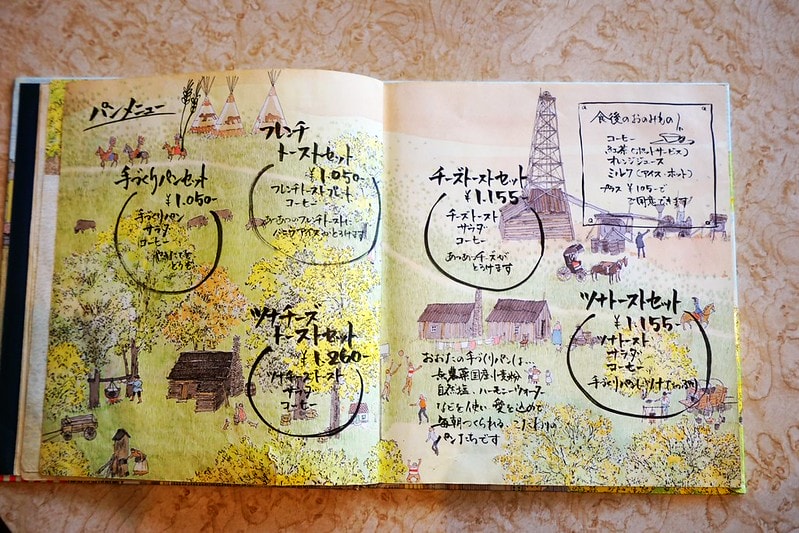 パンメニュー
フレンチ
トーストセット
¥1.050-
フレンチトースト
コーヒー
あつあつフレンチトーストに
バニラアイスがとろけます
手づくりパンセット
¥1.050-
手づくりパン
サラダ
コーヒー
ツナチーズ
トーストセット
¥1.260-
ツナチーズトースト
サラダ
コーヒー
チーズトーストセット
¥1.155-
チーズトースト
サラダ
コーヒー
あつあつチーズが
とろけます
食後のおのみもの
コーヒー
紅茶(ポットサービス)
オレンジジュース
ミルク(アイス・ホット)
プラス ¥105-で
ご用意できます
ツナトーストセット
¥1.155-
ツナトースト
サラダ
コーヒー
手づくりパンに
おおたの手づくりパンは…
無農薬国産小麦粉
自然塩・ハーモニーウォーター
などを使い愛を込めて
毎朝つくられる こだわりの
パンたちです